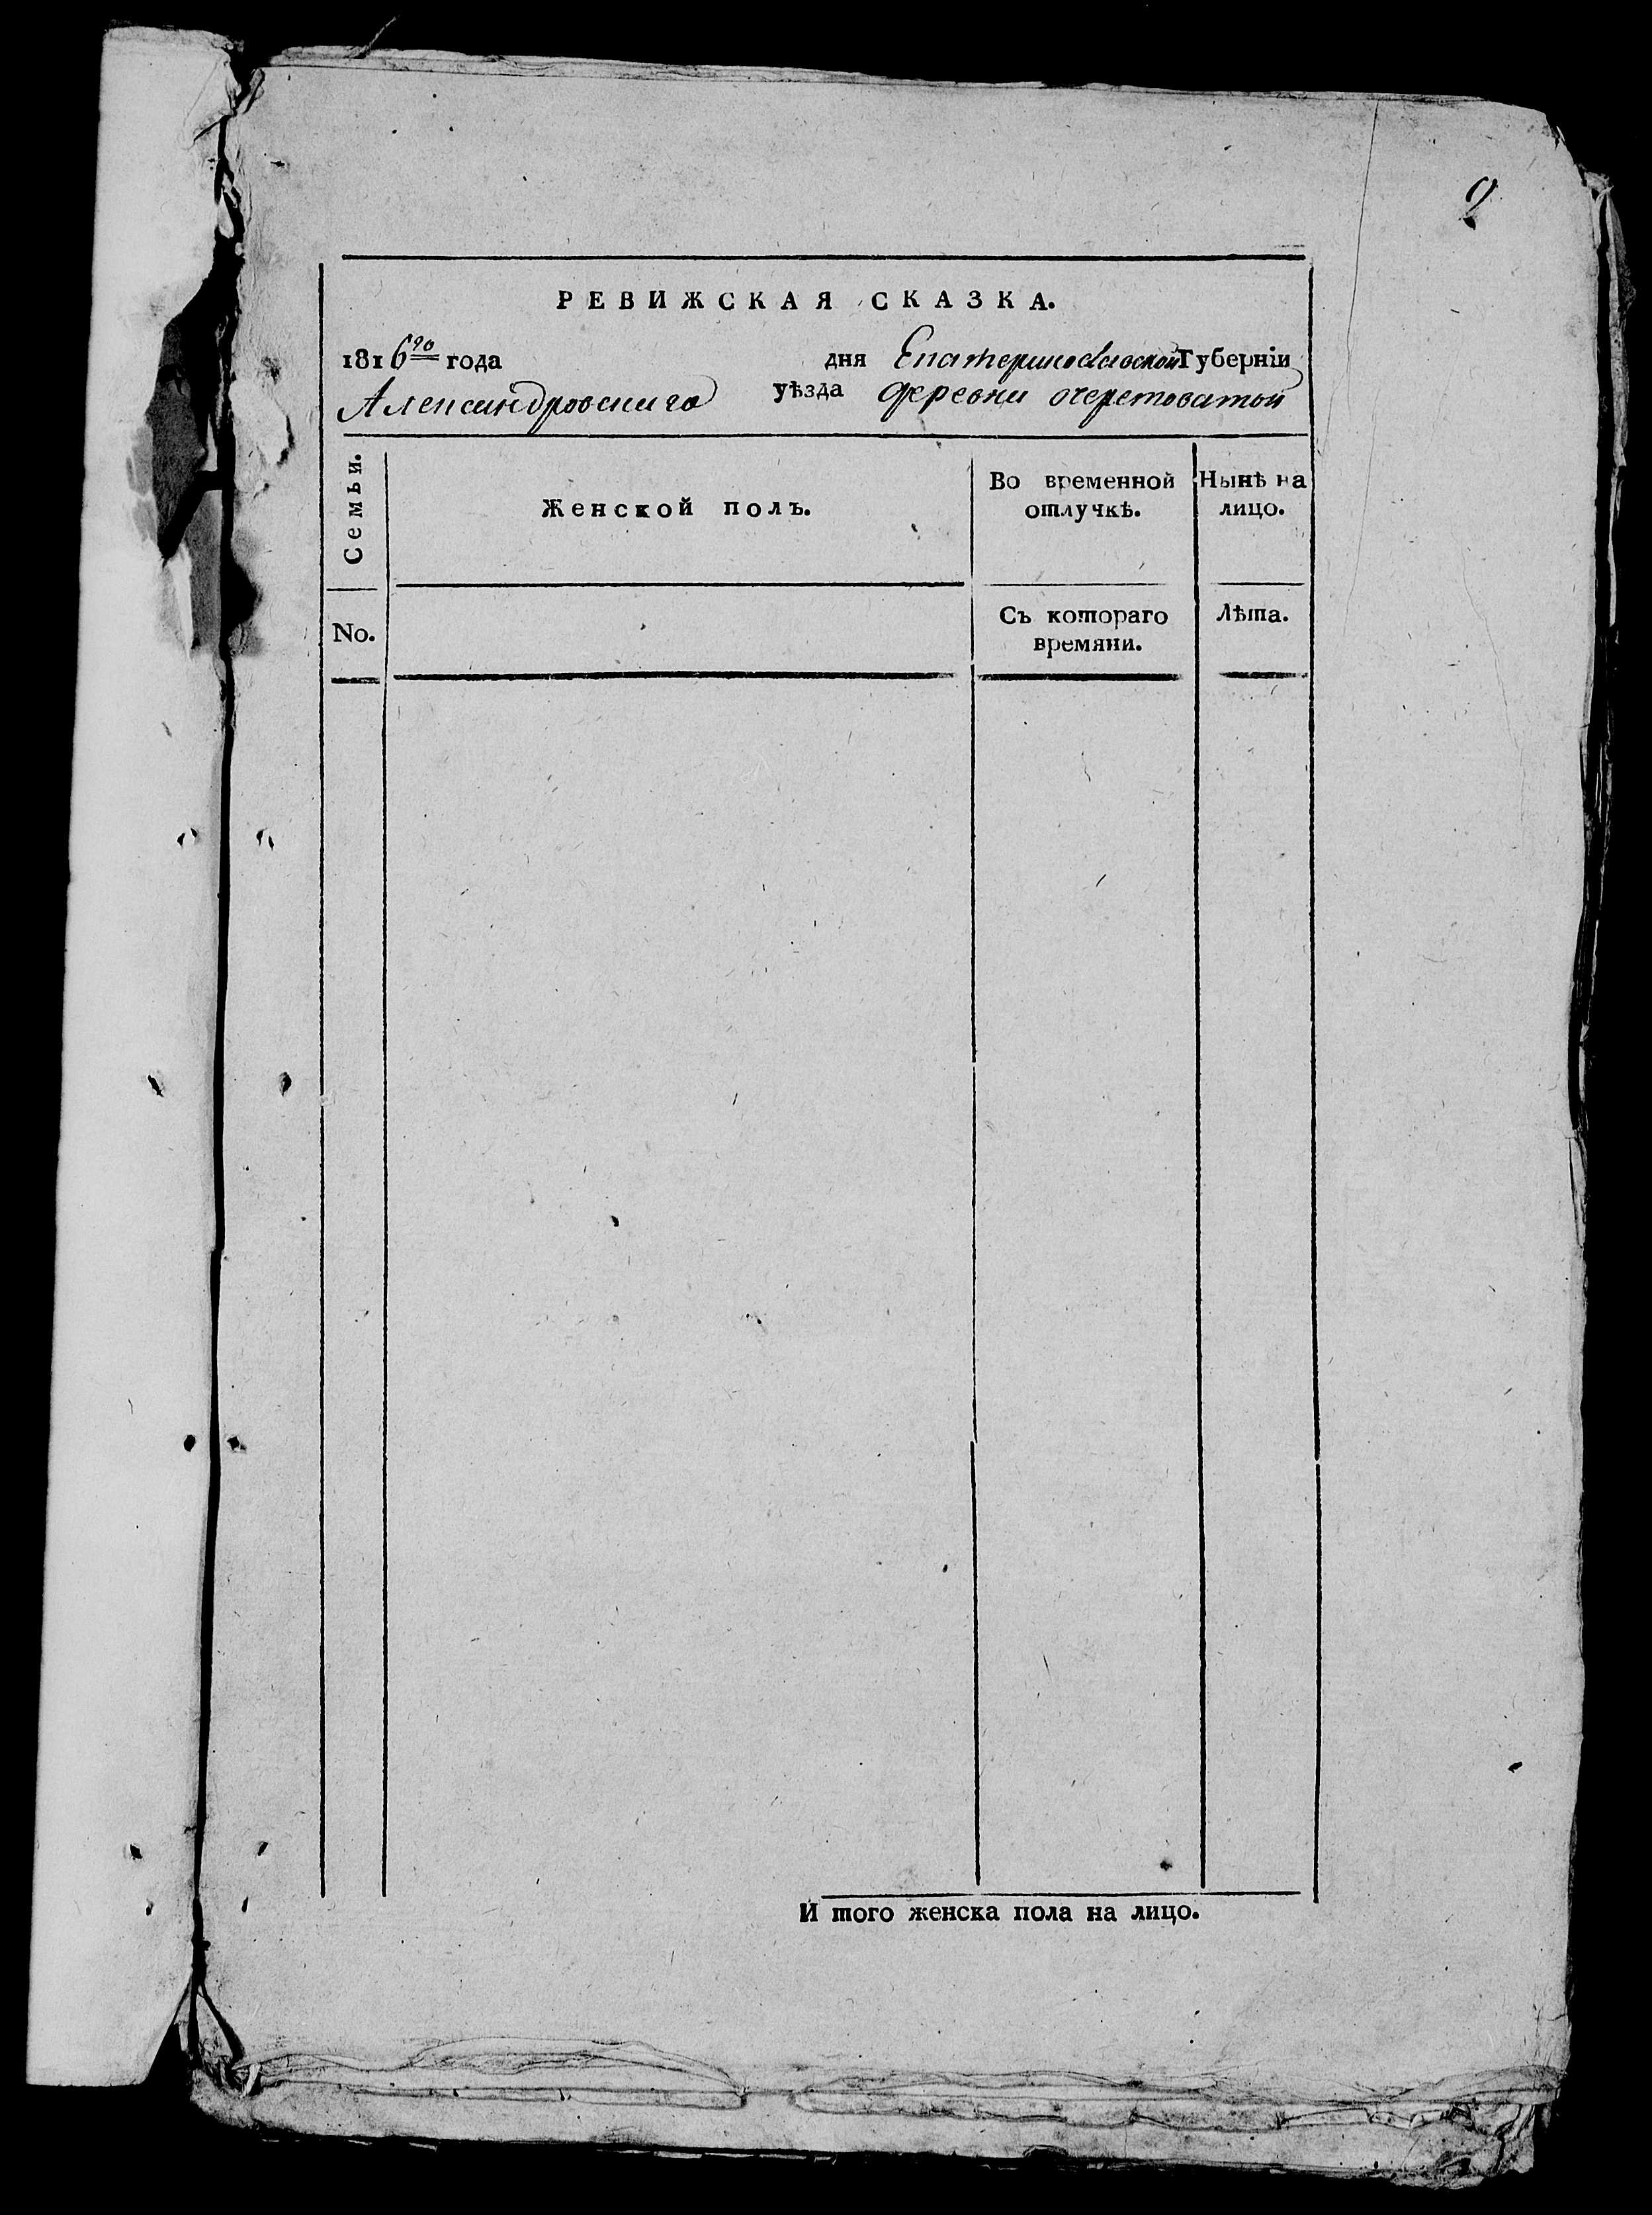 2
РЕВИЖСКАЯ СКАЗКА.
1816го года дня Екатеринославской Губерніи
Александровскаго уѣзда деревни очеретоватой
Семьи.
Женской полъ.
Во временной отлучкѣ.
Нынѣ на лицо.
No.
Съ котораго времяни.
Лѣта.
И того женска пола на лицо.